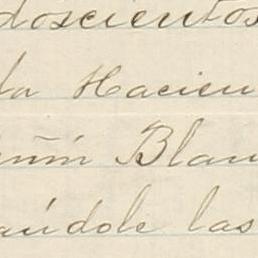 doscientos
la Hacien
Blan
andole las